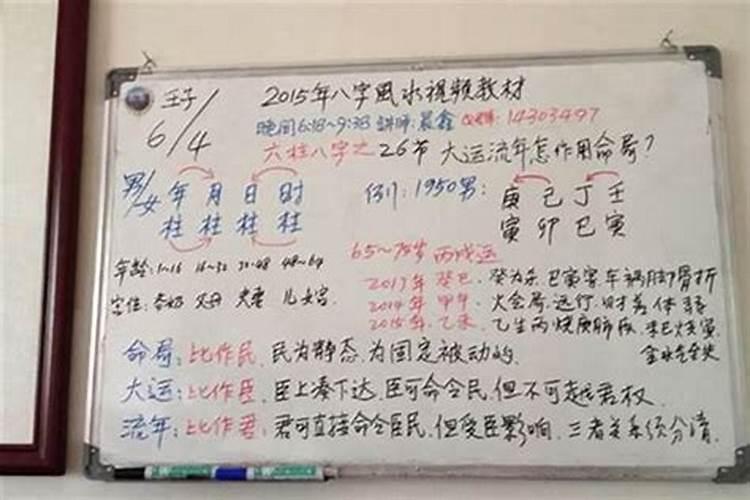 壬子/ 2015年八字風水視頻教材
6/4 晚间6:18~9:38 講师:晨鑫 14303497
六柱八字之26节 大运流年怎作用命局?
男/女 年 月 日 时
柱 柱 柱 柱
例:1950男: 庚 己 丁 壬
寅 卯 巳 寅
65~75岁 丙戌运
年龄:1~16 16~32 32~48 48~64
宫位: 父母 夫妻 儿女宫
癸巳. 癸为杀. 巳寅害. 车祸脚骨折
2014年 甲午. 火会局. 远行. 财差体弱
2015年. 乙未. 乙生丙
命局:比作民. 民为静态. 为固定被动的.
大运:比作臣. 臣上凑下达. 臣可命令民. 但不可越君权.
流年:比作君. 君可直接命令臣民. 但受臣影响. 三者关系须分清.